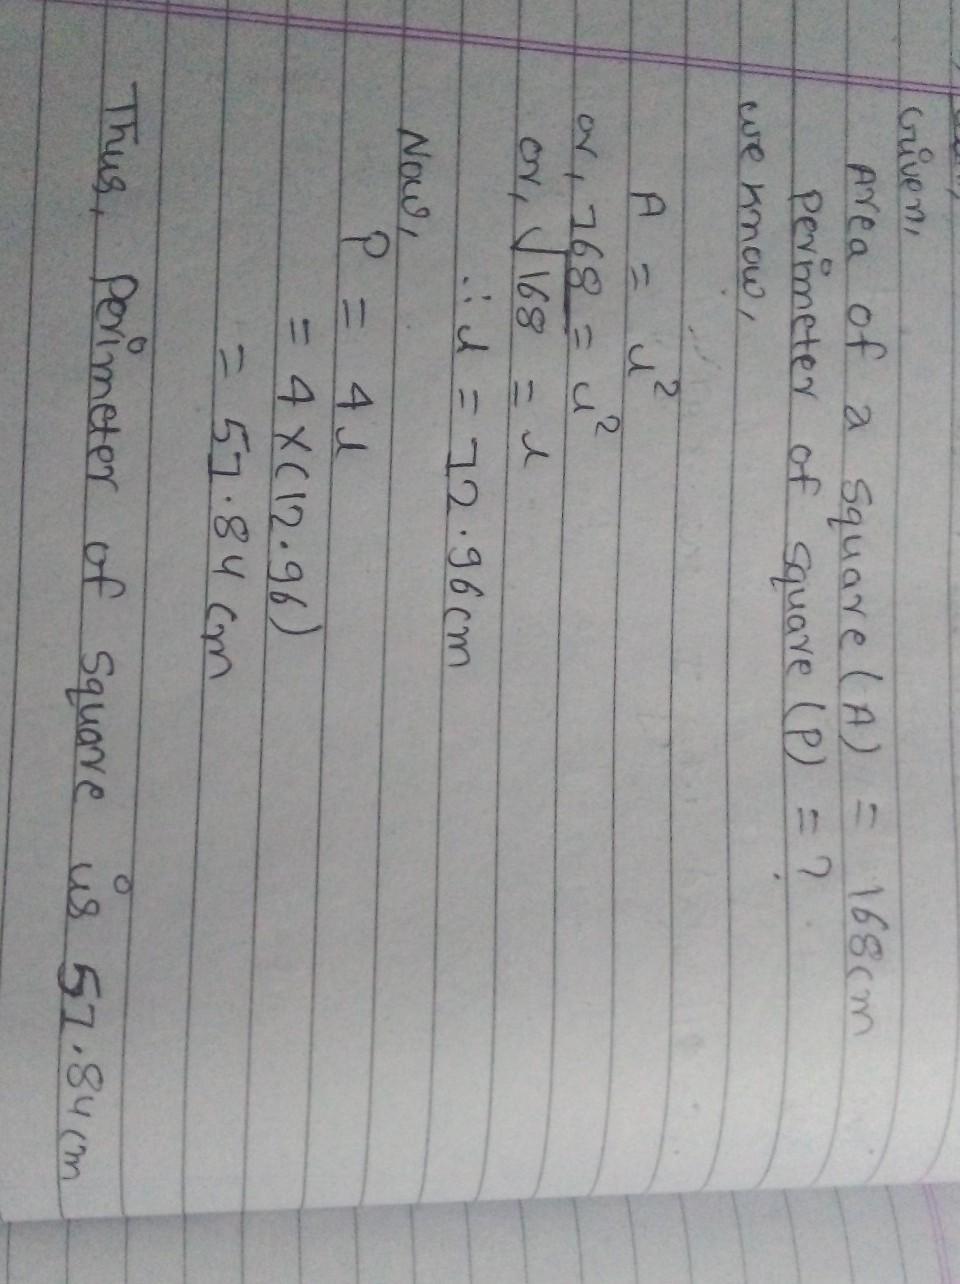 Given,
Area of a square (A) = 168cm
Perimeter of square (P) = ?
we know,
A = l²
or, 168 = l²
or, √168 = l
∴ l = 12.96cm
Now,
P = 4l
= 4×(12.96)
= 51.84cm
Thus, Perimeter of square is 51.84cm